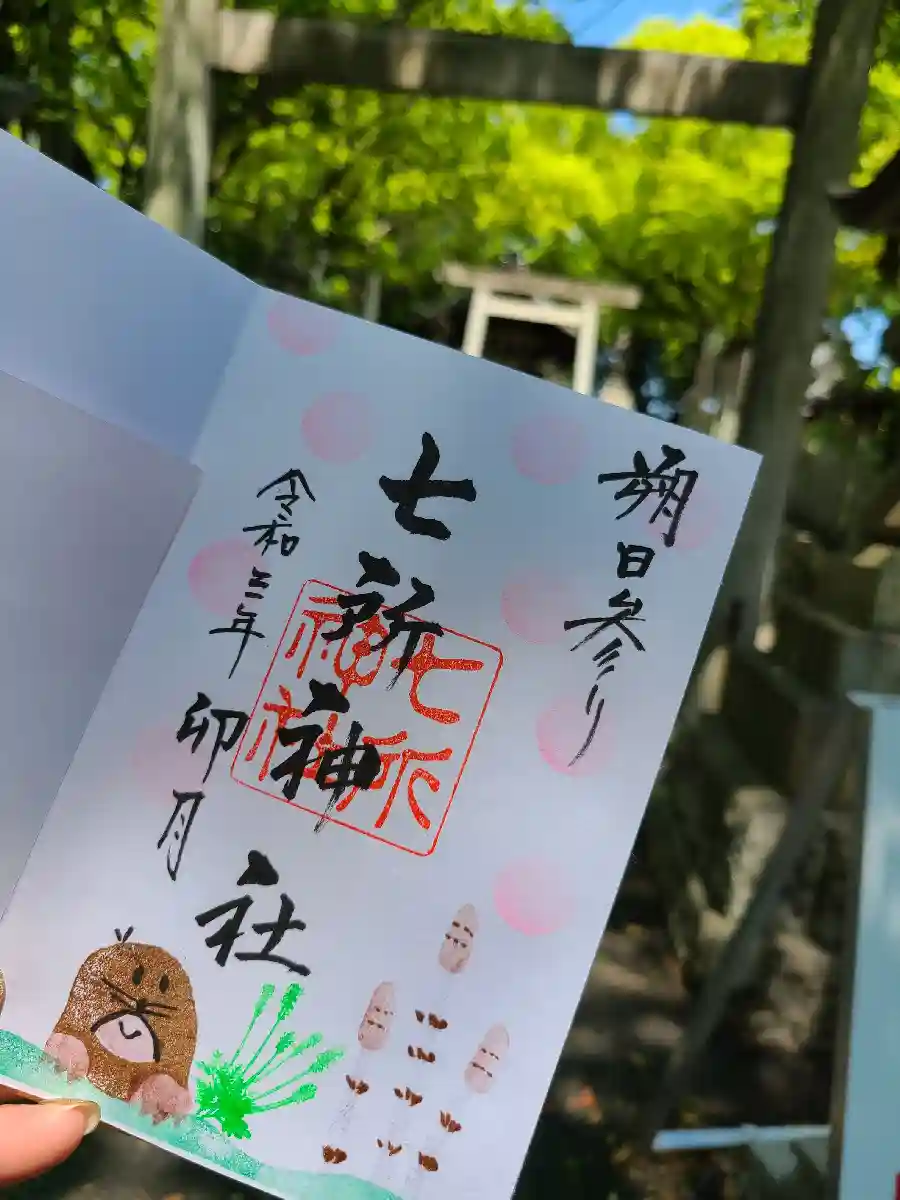 朔日参り
七所神社
七所
神社
令和三年
卯月